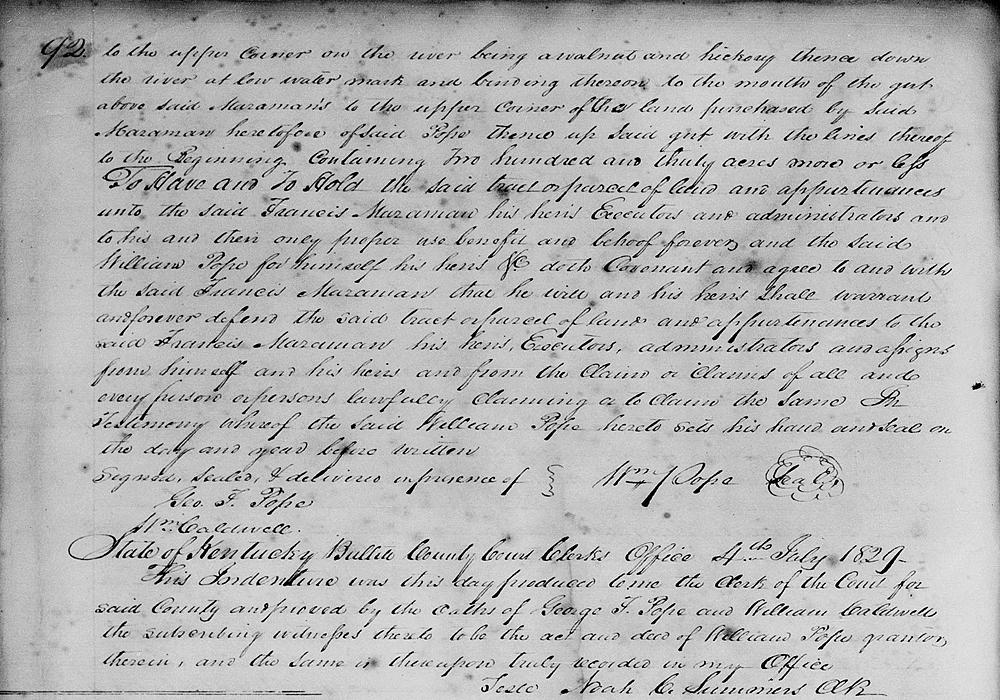 92 to the upper Corner on the river being a walnut and hickory thence down
the river at low water mark and binding thereon to the mouth of the gut
above said Maraman's to the upper Corner of the land purchased by said
Maraman heretofore of said Pope thence up said gut with the lines thereof
to the Beginning Containing Two hundred and thirty acres more or less
To Have and To Hold the said tract or parcel of land and appurtenances
unto the said Francis Maraman his heirs Executors and administrators and
to his and their only proper use benefit and behoof forever, and the said
William Pope for himself his heirs &c doth Covenant and agree to and with
the said Francis Maraman that he will and his heirs shall warrant
and forever defend the said tract or parcel of land and appurtenances to the
said Francis Maraman his heirs, Executors, administrators and assigns
from himself and his heirs and from the Claim or Claims of all and
every person or persons lawfully Claiming or to Claim the same In
Testimony whereof the said William Pope hereto sets his hand and seal on
the day and year before written
Signed, Sealed, & delivered in presence of } Wm Pope Seal
Geo. F. Pope
Wm Caldwell.
State of Kentucky Bullitt County Court Clerks Office 4th July 1829-
This Indenture was this day produced to me the Clerk of the Court for
said County and proved by the oaths of George F. Pope and William Caldwell
the subscribing witnesses thereto to be the act and deed of William Pope grantor,
therein, and the same is thereupon truly recorded in my Office
Teste Noah C. Summers Clk